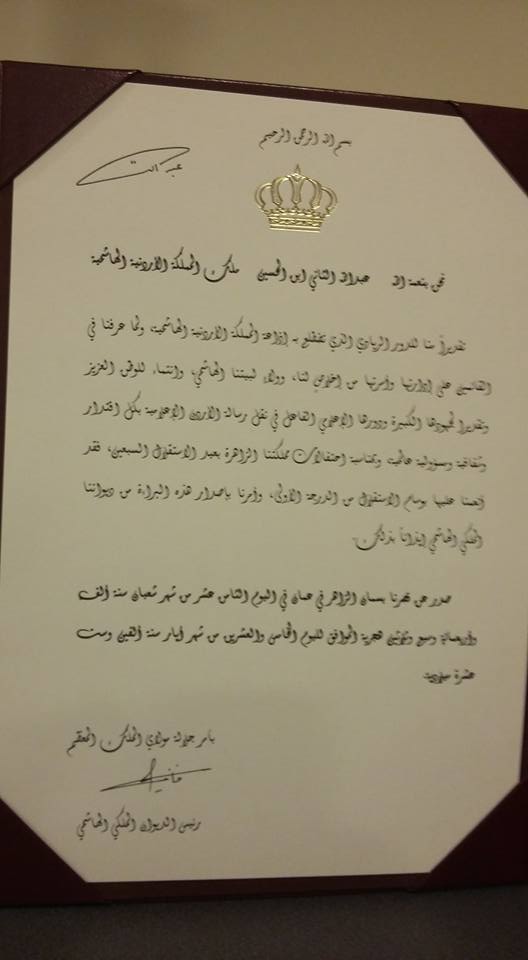 بسم الله الرحمن الرحيم
عبدالله
نحن بنعمة الله عبدالله الثاني ابن الحسين ملك المملكة الأردنية الهاشمية
تقديراً منا للدور الريادي الذي تضطلع به إذاعة المملكة الأردنية الهاشمية، ولما عرفنا في
القائمين على إدارتها وأسرتها من إخلاص لنا، وولاء لبيتنا الهاشمي، وانتماء للوطن العزيز
وتقديراً لجهودها الكبيرة ودورها الإعلامي الفاعل في نقل رسالة الأردن الإعلامية بكل اقتدار
وشفافية ومسؤولية عالية، وبمناسبة احتفالات مملكتنا الزاهرة بعيد الاستقلال السبعين، فقد
أنعمنا عليها بوسام الاستقلال من الدرجة الأولى، وأمرنا بإصدار هذه البراءة من ديواننا
الملكي الهاشمي إيذاناً بذلك.
صدر عن قصرنا بسمان الزاهر في عمان في اليوم الثامن عشر من شهر شعبان سنة ألف
وأربعماية وسبع وثلاثين هجرية الموافق لليوم الخامس والعشرين من شهر أيار سنة ألفين وست
عشرة ميلادية
بامر جلالة مولاي الملك المعظم
رئيس الديوان الملكي الهاشمي